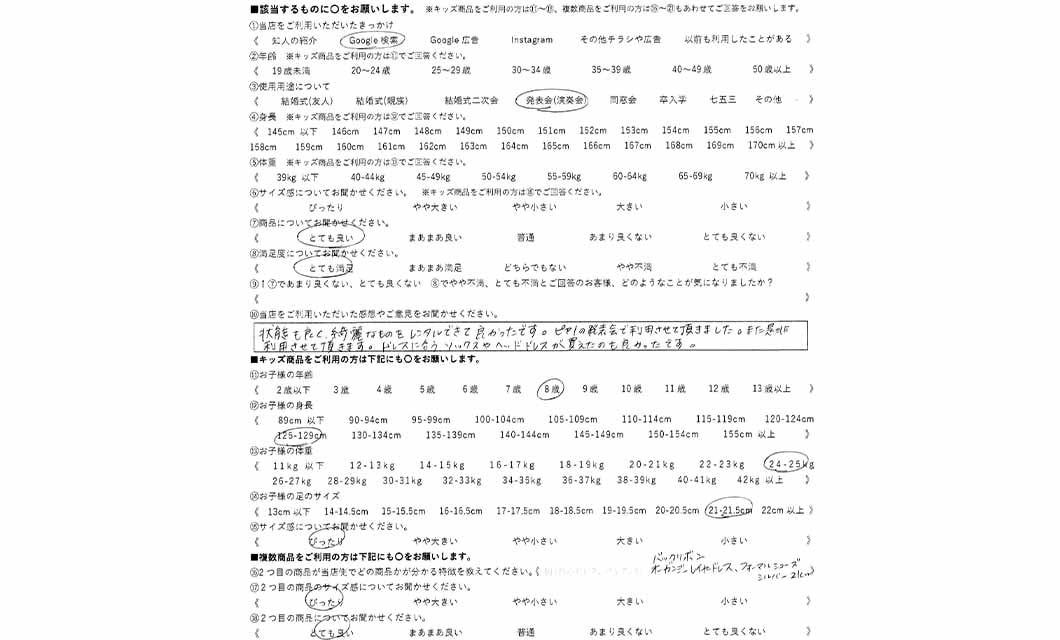 ■該当するものに〇をお願いします。 ※キッズ商品をご利用の方は⑪〜⑮、複数商品をご利用の方は⑯〜㉑もあわせてご回答をお願いします。
①当店をご利用いただいたきっかけ
《 知人の紹介 Google 検索 Google 広告 Instagram その他チラシや広告 以前も利用したことがある 》
②年齢 ※キッズ商品をご利用の方は⑪でご回答ください。
《 19歳未満 20〜24歳 25〜29歳 30〜34歳 35〜39歳 40〜49歳 50歳以上 》
③使用用途について
《 結婚式(友人) 結婚式(親族) 結婚式二次会 発表会(演奏会) 同窓会 卒入学 七五三 その他 》
④身長 ※キッズ商品をご利用の方は⑫でご回答ください。
《 145cm 以下 146cm 147cm 148cm 149cm 150cm 151cm 152cm 153cm 154cm 155cm 156cm 157cm
158cm 159cm 160cm 161cm 162cm 163cm 164cm 165cm 166cm 167cm 168cm 169cm 170cm 以上 》
⑤体重 ※キッズ商品をご利用の方は⑬でご回答ください。
《 39kg 以下 40-44kg 45-49kg 50-54kg 55-59kg 60-64kg 65-69kg 70kg 以上 》
⑥サイズ感についてお聞かせください。 ※キッズ商品をご利用の方は⑮でご回答ください。
《 ぴったり やや大きい やや小さい 大きい 小さい 》
⑦商品についてお聞かせください。
《 とても良い まあまあ良い 普通 あまり良くない とても良くない 》
⑧満足度についてお聞かせください。
《 とても満足 まあまあ満足 どちらでもない やや不満 とても不満 》
⑨↑⑦であまり良くない、とても良くない ⑧でやや不満、とても不満とご回答のお客様、どのようなことが気になりましたか？
《 》
⑩当店をご利用いただいた感想やご意見をお聞かせください。
状態も良く、綺麗なものをレンタルできて良かったです。ピアノの発表会で利用させて頂きました。また是非
利用させて頂きます。ドレスに合うソックスやヘッドドレスが買えたのも良かったです。
■キッズ商品をご利用の方は下記にも〇をお願いします。
⑪お子様の年齢
《 2歳以下 3歳 4歳 5歳 6歳 7歳 8歳 9歳 10歳 11歳 12歳 13歳以上 》
⑫お子様の身長
《 89cm 以下 90-94cm 95-99cm 100-104cm 105-109cm 110-114cm 115-119cm 120-124cm
125-129cm 130-134cm 135-139cm 140-144cm 145-149cm 150-154cm 155cm 以上 》
⑬お子様の体重
《 11kg 以下 12-13kg 14-15kg 16-17kg 18-19kg 20-21kg 22-23kg 24-25kg
26-27kg 28-29kg 30-31kg 32-33kg 34-35kg 36-37kg 38-39kg 40-41kg 42kg 以上 》
⑭お子様の足のサイズ
《 13cm 以下 14-14.5cm 15-15.5cm 16-16.5cm 17-17.5cm 18-18.5cm 19-19.5cm 20-20.5cm 21-21.5cm 22cm 以上 》
⑮サイズ感についてお聞かせください。
《 ぴったり やや大きい やや小さい 大きい 小さい 》
■複数商品をご利用の方は下記にも〇をお願いします。
バックリボン
⑯2つ目の商品が当店先でどの商品かが分かる特徴を教えてください。《 オーガンジーレイヤドレス、フォーマルシューズ
シルバー 21cm 》
⑰2つ目の商品のサイズ感についてお聞かせください。
《 ぴったり やや大きい やや小さい 大きい 小さい 》
⑱2つ目の商品についてお聞かせください。
《 とても良い まあまあ良い 普通 あまり良くない とても良くない 》